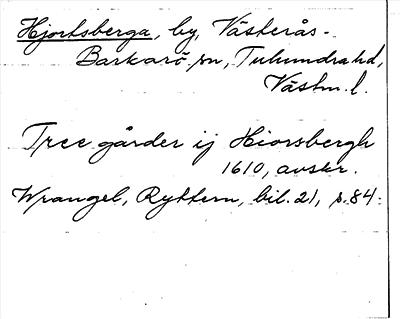 Hjortsberga, by, Västerås-
Barkarö sn, Tuhundra hd,
Västm. l.
Tree gårder ij Hiorsbergh
1610, avskr.
Wrangel, Ryttern, bil. 21, s. 84.